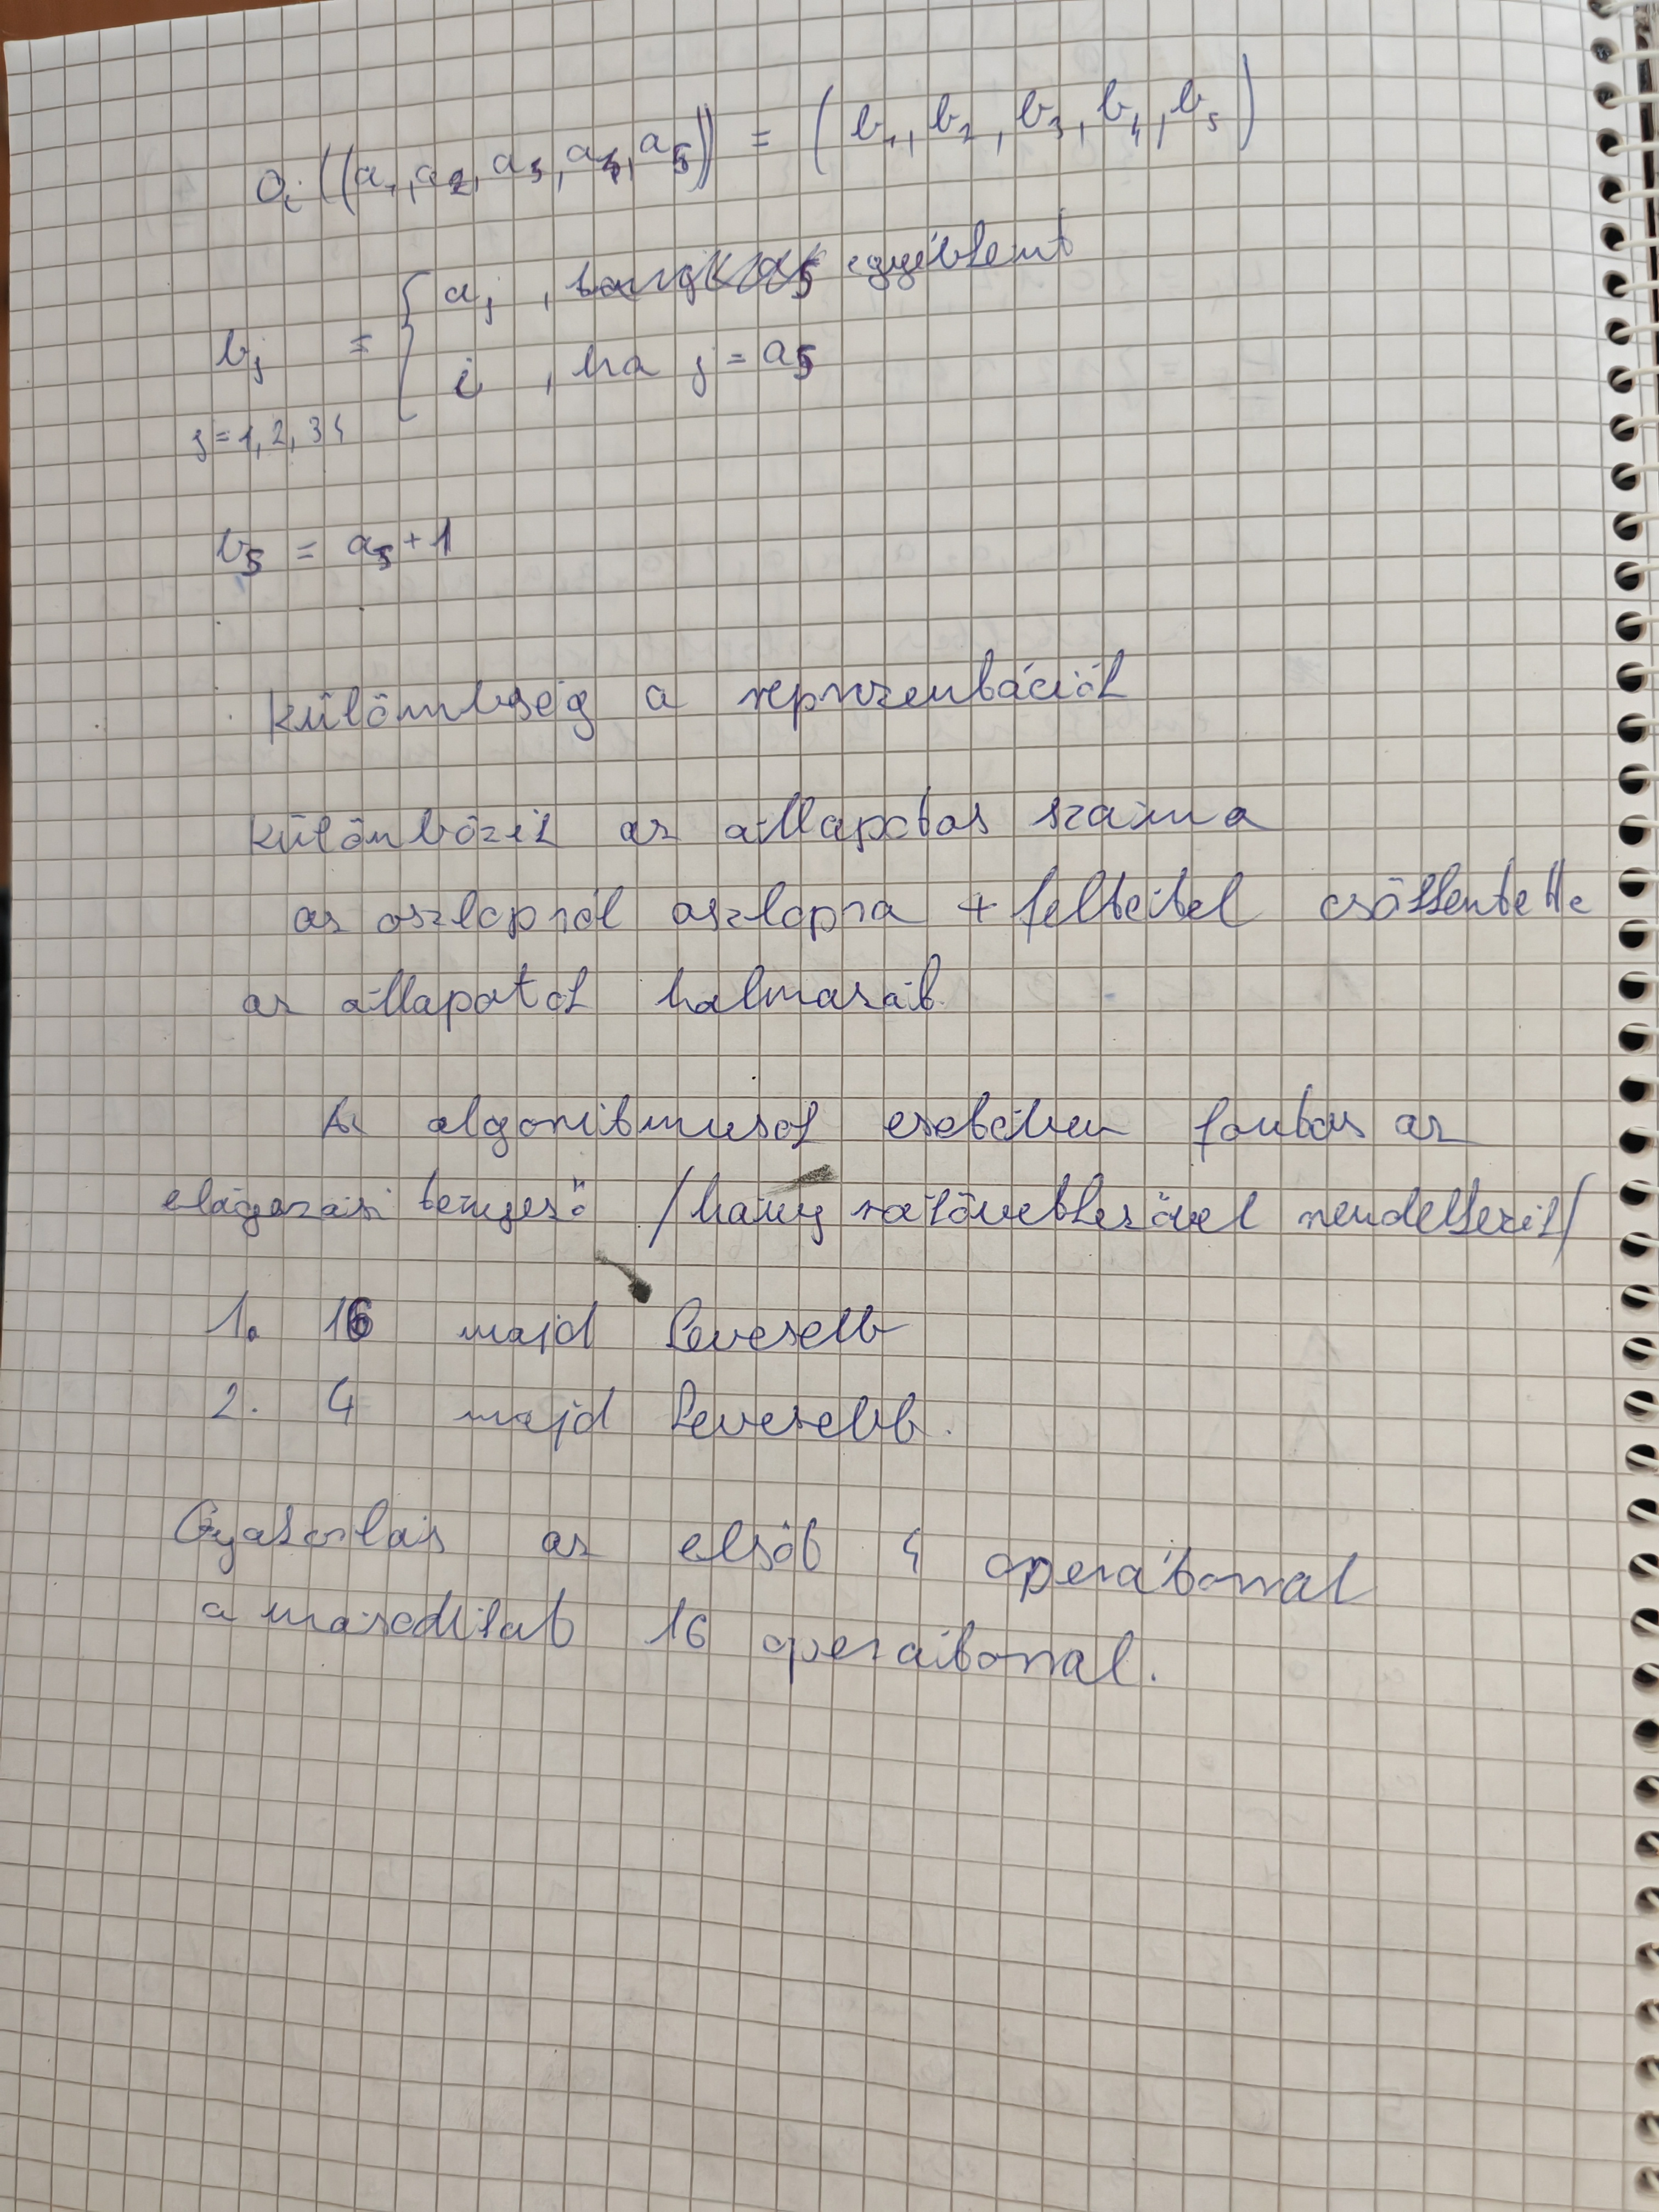 O_i((a_1, a_2, a_3, a_4, a_5)) = (b_1, b_2, b_3, b_4, b_5)
b_j = { a_j , egyébként
i , ha j = a_5
j = 1, 2, 3 4
b_5 = a_5 + 1
Külömbség a reprezentációk
Különbözik az állapotos száma
az oszlopról oszlopra + feltétel csökkentette
az állapotok halmazát.
Az algoritmusok esetében fontos az
elágazási tényező /hány rákövetkezővel rendelkezik/
1. 16 majd kevesebb
2. 4 majd kevesebb.
Gyakorlás az elsőt 4 operátorral
a másodikat 16 operátorral.